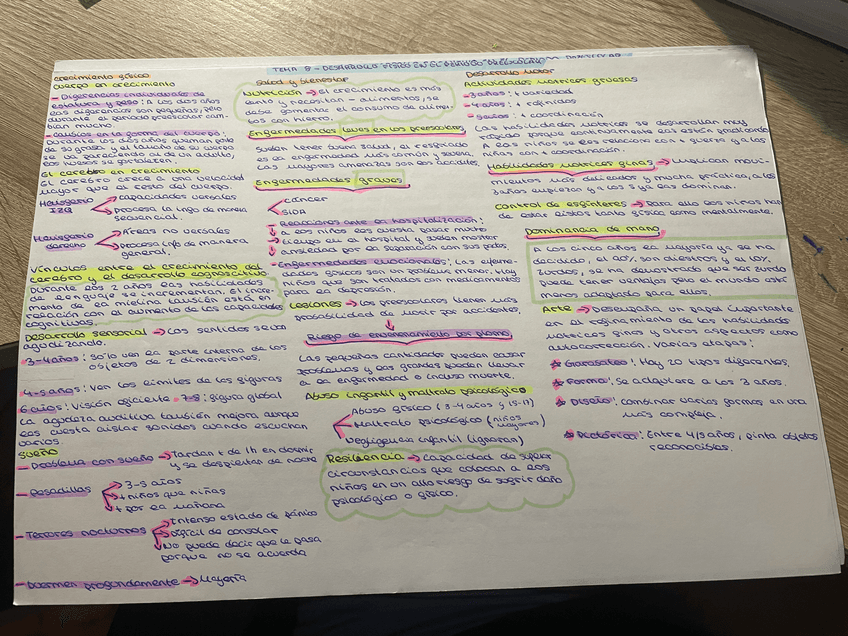 TEMA 8 - DESARROLLO FÍSICO EN EL
Crecimiento físico
Cuerpo en crecimiento
- Diferencias individuales de
estatura y peso: A los dos años
las diferencias son pequeñas, pero
durante el período preescolar cam-
bian mucho.
- Cambios en la forma del cuerpo:
Durante los dos años queman parte
de su grasa y el tamaño de su cuerpo
se va pareciendo al de un adulto,
los huesos se fortalecen.
El cerebro en crecimiento
El cerebro crece a una velocidad
mayor que el resto del cuerpo.
Hemisferio
IZQ
capacidades verbales
procesa la info de manera
secuencial.
Hemisferio
derecho
Áreas no verbales
procesa info de manera
general.
Vínculos entre el crecimiento del
cerebro y el desarrollo cognoscitivo
Durante los 2 años las habilidades
de lenguaje se incrementan. El incre-
mento de la mielina también está en
relación con el aumento de las capacidades
cognitivas.
Desarrollo sensorial → Los sentidos se van
agudizando.
- 3-4 años: Sólo ven la parte interna de los
objetos de 2 dimensiones.
- 4-5 años: Ven los límites de las figuras
6 años: Visión eficiente 7-8: figura global
La agudeza auditiva también mejora, aunque
les cuesta aislar sonidos cuando escuchan
varios
Sueño
- Problema con sueño → Tardan + de 1h en dormir
y se despiertan de noche
- Pesadillas
3-5 años
+ niños que niñas
+ por la mañana
- Terrores nocturnos
Intenso estado de pánico
Difícil de consolar
No puede decir que le pasa
porque no se acuerda
- Duermen profundamente → Mayoría
Salud y bienestar
Nutrición → El crecimiento es más
lento y necesitan - alimentos, se
debe fomentar el consumo de alimen-
tos con hierro.
Enfermedades leves en los preescolares
Suelen tener buena salud, el resfriado
es la enfermedad más común y severa.
Las mayores amenazas son los accidentes.
Enfermedades graves
cáncer
SIDA
- Reacciones ante la hospitalización:
a los niños les cuesta pasar mucho
tiempo en el hospital y suelen mostrar
ansiedad por la separación con sus padres.
- Enfermedades emocionales: Las enferme-
dades físicas son un problema menor. Hay
niños que son tratados con medicamentos
para la depresión.
Lesiones → los preescolares tienen más
probabilidad de morir por accidentes.
Riesgo de envenenamiento por plomo
Las pequeñas cantidades pueden causar
problemas y las grandes pueden llevar
a la enfermedad o incluso muerte.
Abuso infantil y maltrato psicológico
Abuso físico (3-4 años y 15-17)
Maltrato psicológico (niños
mayores)
Negligencia infantil (ignoran)
Resiliencia → capacidad de superar
circunstancias que colocan a los
niños en un alto riesgo de sufrir daño
psicológico o físico.
Desarrollo motor
Actividades motrices gruesas
- 3 años: + variedad
- 4 años: + refinidos
- 5 años: + coordinación
Las habilidades motrices se desarrollan muy
rápido porque continuamente las están practicando
A los niños se les relaciona con + fuerza y a las
niñas con + coordinación.
Habilidades motrices finas → Implican movi-
mientos más delicados y mucha práctica, a los
3 años empieza y a los 5 ya las dominan.
Control de esfínteres → Para ello los niños han
de estar listos tanto física como mentalmente.
Dominancia de mano
A los cinco años la mayoría ya se ha
decidido, el 90% son diestros y el 10%
zurdos, se ha demostrado que ser zurdo
puede tener ventajas pero el mundo está
menos adaptado para ellos.
Arte → Desempeñan un papel importante
en el refinamiento de las habilidades
motrices finas y otros aspectos como
autocorrección. Varias etapas:
Garabateo: Hay 20 tipos diferentes.
Forma: Se adquiere a los 3 años.
Diseño: combinar varias formas en una
más compleja.
Pictórica: Entre 4/5 años, pinta objetos
reconocibles.